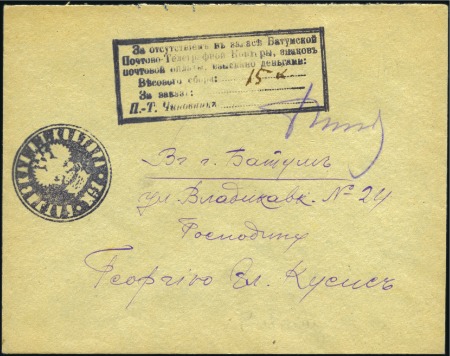 За отсутствіемъ въ кассѣ Батумской
Почтово-Телеграфной Конторы, знаковъ
почтовой оплаты, взыскано деньгами:
Вѣсового сбора: 15 к
За заказъ:
П.-Т. Чиновникъ
Въ г. Батумъ
ул. Владикавк. № 24
Господину
Георгію Ел. Кусисъ